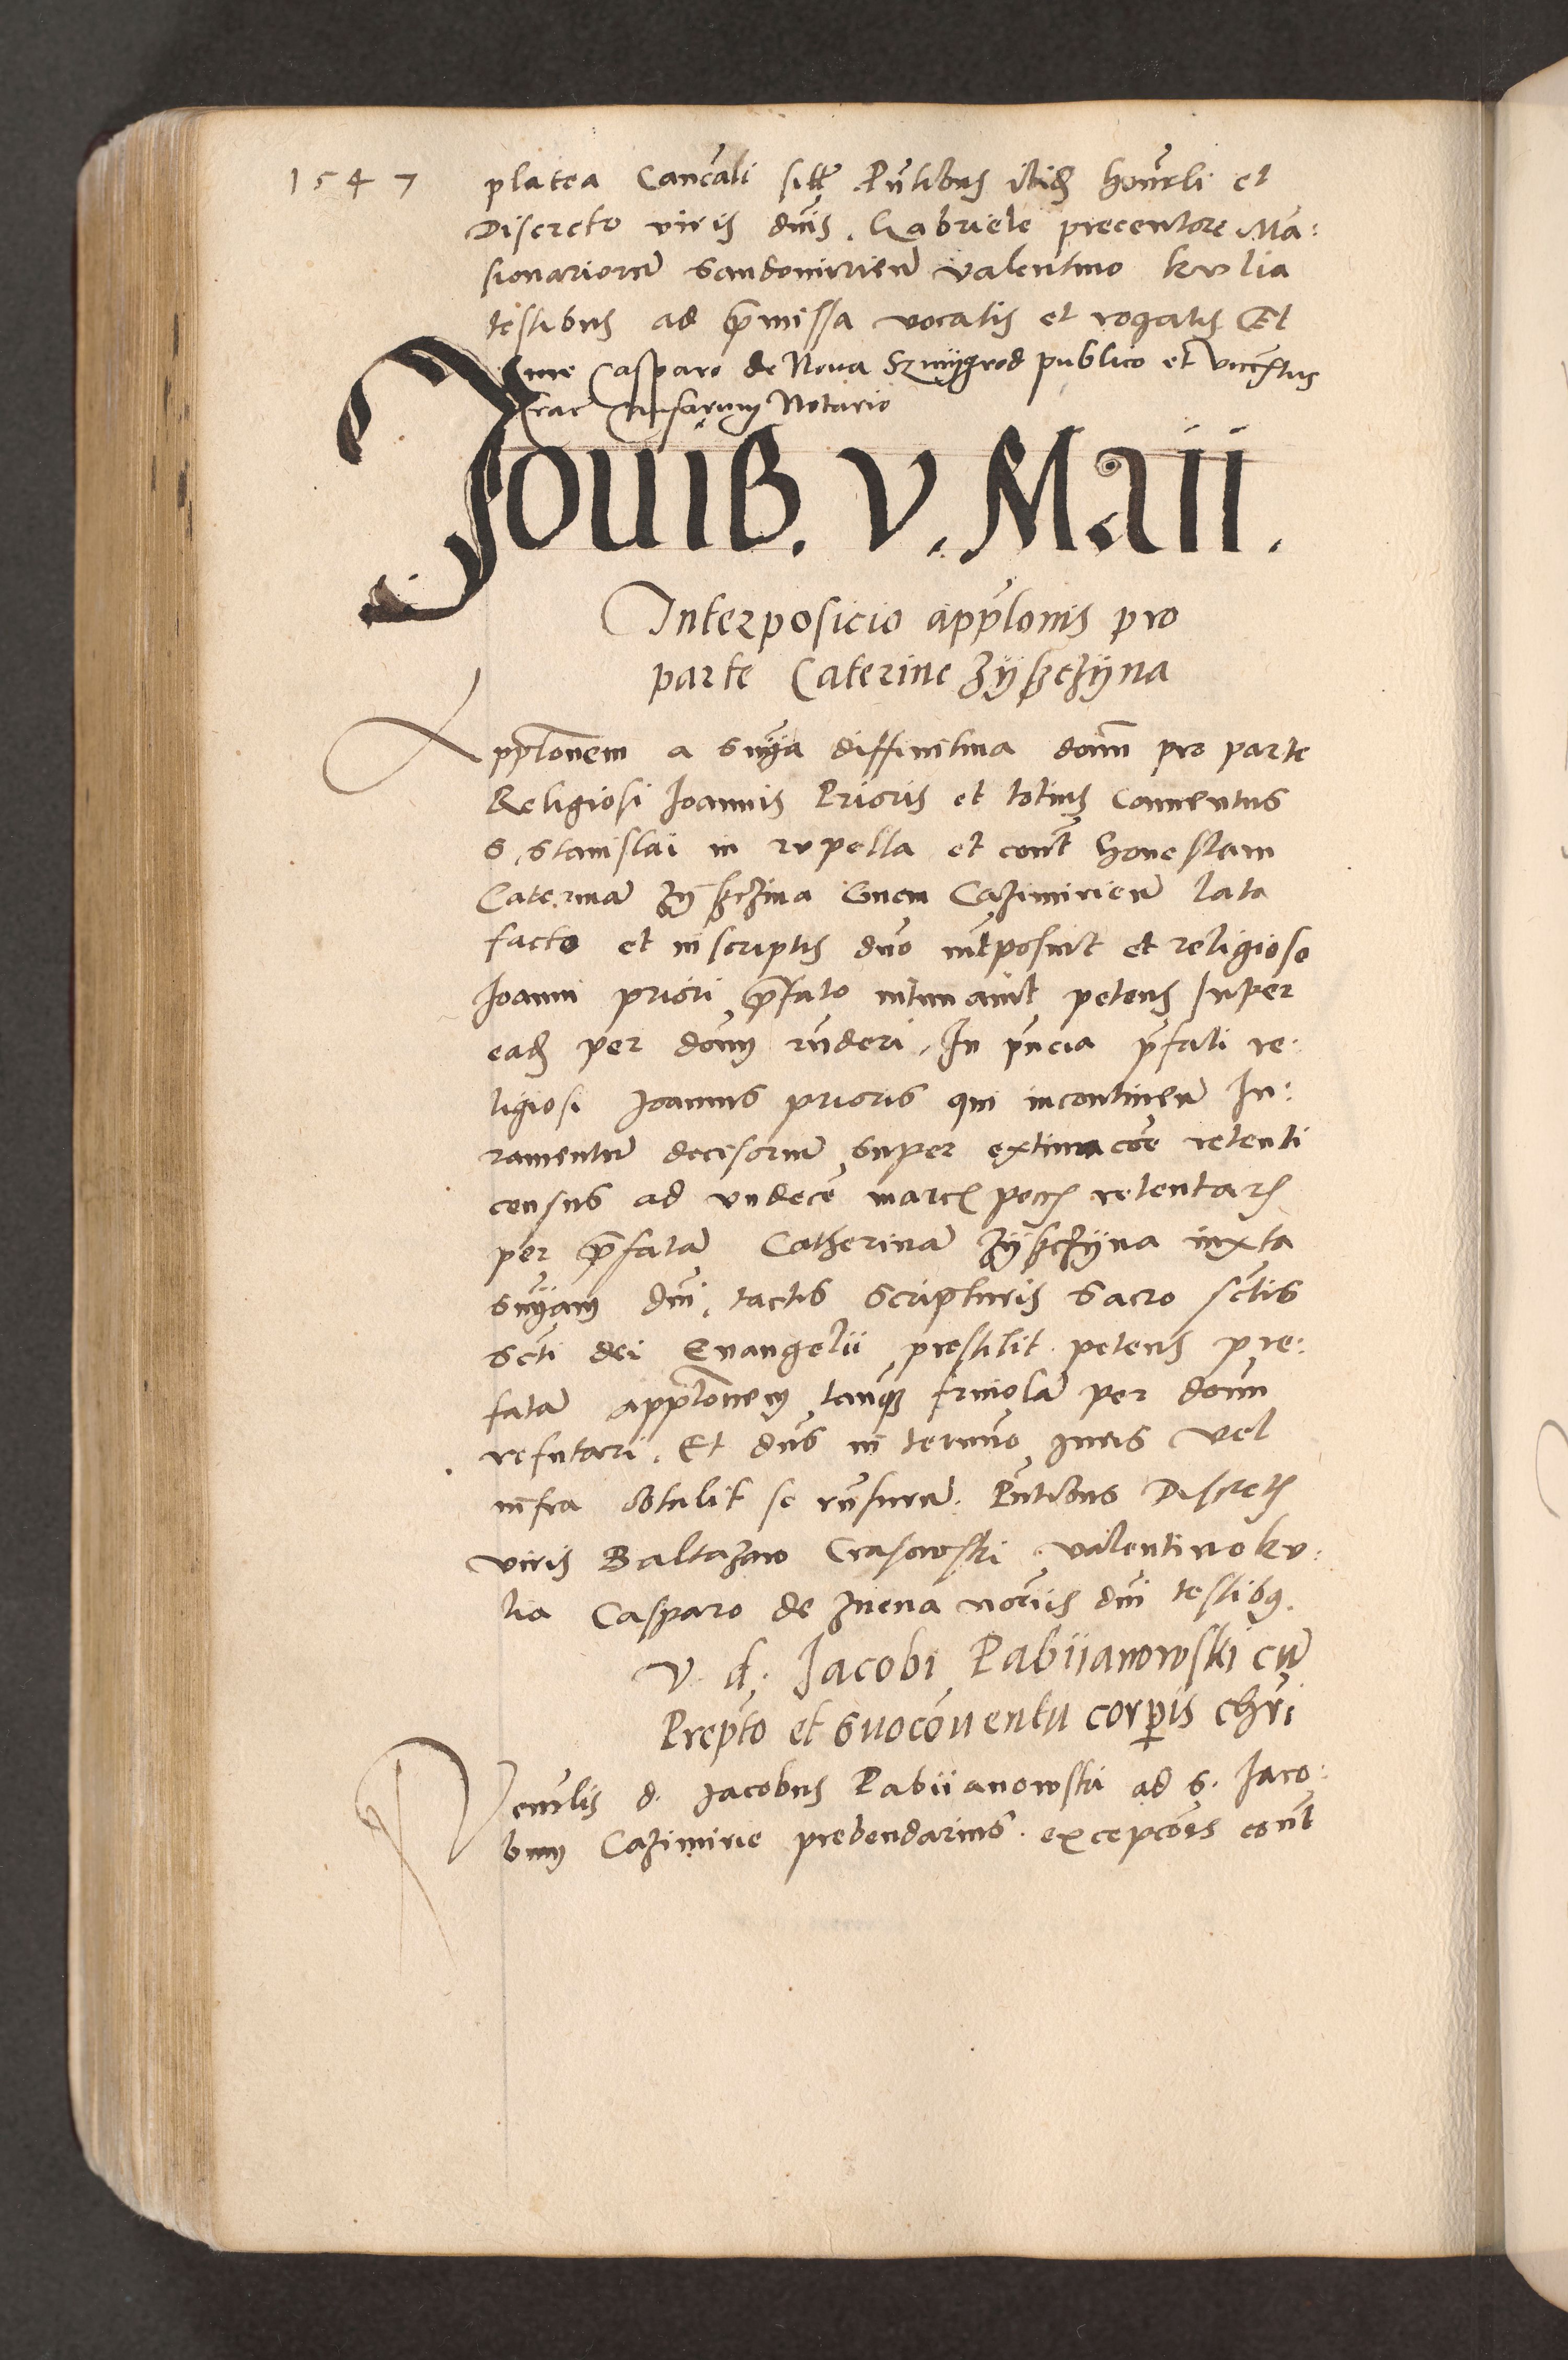 1547
platea Cancali sitr Pntibus ibid honorli et
Discreto viris dnis. Gabriele precentore Ma:
sionariorum Sandomirien valentino kulia
testibus ad pmissa vocatis et rogatis Et
me Casparo de Noua Szmygrod publico et
Crac causarum Notario
Jouis. v. Maii.
Interposicio applonis pro
parte Caterine Zÿsczÿna
Applonem a snÿa diffinitiua dom pro parte
Religiosi Joannis Prioris et totius Conuentus
S. Stanislai in rupella et cont honestam
Caterina Zÿsczina Cazimirien lata
facto et in scriptis dno intposuit et religioso
Joanni priori pfato intimauit petens super
ead per dom rnderi. In pncia pfati re:
ligiosi Joannis prioris qui incontinen Iu:
ramentum decisorium super extimacoe retenti
census ad undece marc pecc retentas
per pfatam Catherinam Zÿsczÿna iuxta
snÿam dni, tactis Scripturis sacro sctis
scti dei Euangelii prestitit petens pre:
fatam applonem tanq friuolam per dom
refutari. Et dns in termino iuris vel
infra obtulit se rnsurum. Pntibus Discretis
viris Baltazaro Crasowski valentino ku:
lia Casparo de Znena notriis dni testibus.
V. d. Jacobi Pabiianowski cu
Prepto et suo conuentu corpis chri
Venerlis d. Jacobus Pabiianowski ad s. Jaco:
bum Cazimirie prebendarius. excepcoes cont